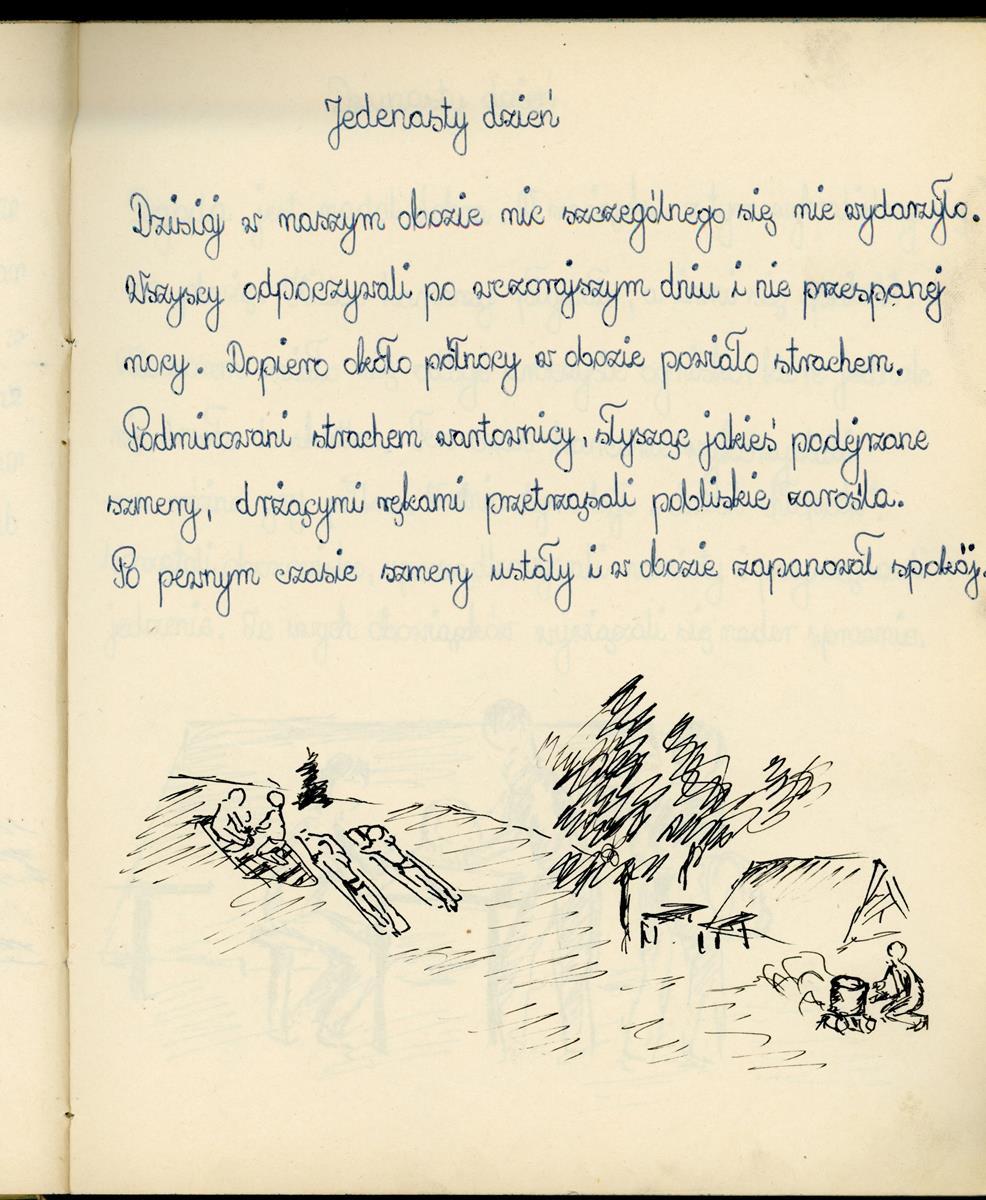 Jedenasty dzień
Dzisiaj w naszym obozie nic szczególnego się nie wydarzyło.
Wszyscy odpoczywali po wczorajszym dniu i nie przespanej
nocy. Dopiero około północy w obozie powiało strachem.
Podminowani strachem wartownicy, słysząc jakieś podejrzane
szmery, drżącymi rękami przetrząsali pobliskie zarośla.
Po pewnym czasie szmery ustały i w obozie zapanował spokój.